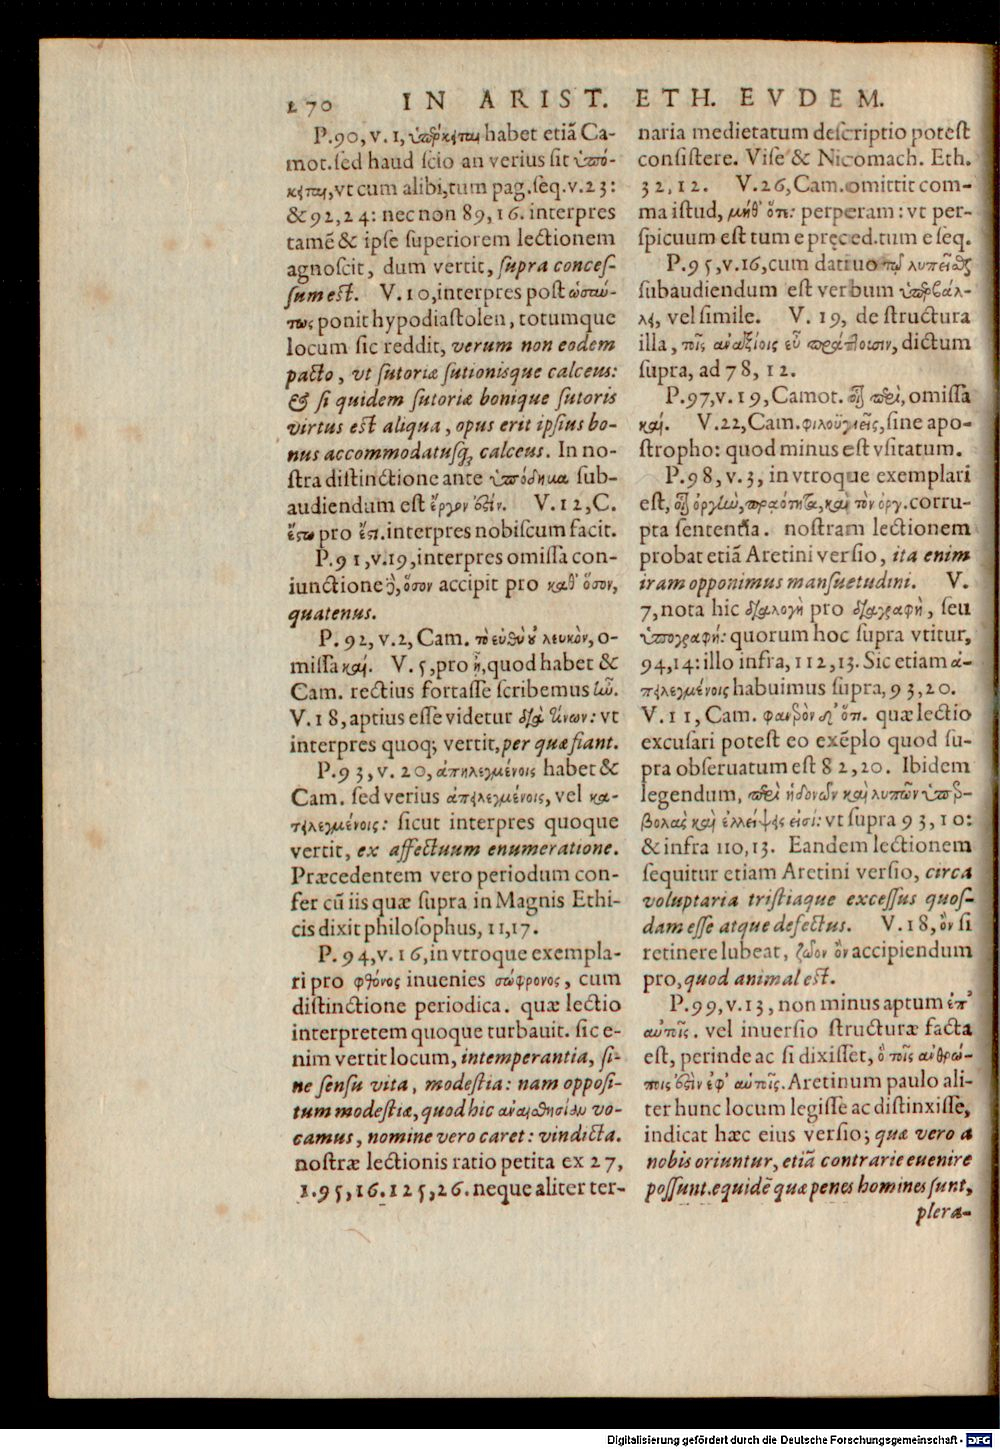 270 IN ARIST. ETH. EVDEM.
P.90, v. 1, ὑπέρκειται habet etiã Ca-
mot. sed haud scio an verius sit ὑπό-
κειται, vt cum alibi, tum pag. seq. v. 23:
& 92, 24: nec non 89, 16. interpres
tamẽ & ipse superiorem lectionem
agnoscit, dum vertit, supra conces-
sum est. V. 10, interpres post ὡσαύ-
τως ponit hypodiastolen, totumque
locum sic reddit, verum non eodem
pacto, vt sutoriæ sutionisque calceus:
& si quidem sutoriæ bonique sutoris
virtus est aliqua, opus erit ipsius bo-
nus accommodatusq; calceus. In no-
stra distinctione ante ὑπόδημα sub-
audiendum est ἔργον ἐστίν. V. 12, C.
ἔστω pro ἔστι. interpres nobiscum facit.
P. 91, v. 19, interpres omissa con-
iunctione ἢ, ὅσον accipit pro καθ' ὅσον,
quatenus.
P. 92, v. 2, Cam. τὸ εὐθὺ λευκὸν, o-
missa καί. V. 5, pro ἢ, quod habet &
Cam. rectius fortasse scribemus ἦν.
V. 18, aptius esse videtur διὰ τίνων: vt
interpres quoq; vertit, per quæ fiant.
P. 93, v. 20, ἀπηλεγμένοις habet &
Cam. sed verius ἀπειλεγμένοις, vel κα-
τειλεγμένοις: sicut interpres quoque
vertit, ex affectuum enumeratione.
Præcedentem vero periodum con-
fer cũ iis quæ supra in Magnis Ethi-
cis dixit philosophus, 11, 17.
P. 94, v. 16, in vtroque exempla-
ri pro φθόνος inuenies σώφρονος, cum
distinctione periodica. quæ lectio
interpretem quoque turbauit. sic e-
nim vertit locum, intemperantia, si-
ne sensu vita, modestia: nam opposi-
tum modestiæ, quod hic ἀναισθησίαν vo-
camus, nomine vero caret: vindicta.
nostræ lectionis ratio petita ex 27,
1. 95, 16. 125, 26. neque aliter ter-
naria medietatum descriptio potest
consistere. Vise & Nicomach. Eth.
32, 12. V. 26, Cam. omittit com-
ma istud, μήθ' ὅτι: perperam: vt per-
spicuum est tum e pręced. tum e seq.
P. 95, v. 16, cum datiuo τῷ λυπεῖσθαι
subaudiendum est verbum ὑπερβάλ-
λει, vel simile. V. 19, de structura
illa, τοῖς ἀναξίοις εὖ πράττουσιν, dictum
supra, ad 78, 12.
P. 97, v. 19, Camot. περὶ, omissa
καί. V. 22, Cam. φιλοϋγιεῖς, sine apo-
stropho: quod minus est vsitatum.
P. 98, v. 3, in vtroque exemplari
est, ὀργὴν, πραότητα, καὶ τὸν ὀργ. corru-
pta sententia. nostram lectionem
probat etiã Aretini versio, ita enim
iram opponimus mansuetudini. V.
7, nota hic διαλογὴ pro διαγραφὴ, seu
ὑπογραφή: quorum hoc supra vtitur,
94, 14: illo infra, 112, 13. Sic etiam ἀ-
πειλεγμένοις habuimus supra, 93, 20.
V. 11, Cam. φανερὸν δ' ὅτι. quæ lectio
excusari potest eo exẽplo quod su-
pra obseruatum est 82, 20. Ibidem
legendum, περὶ ἡδονῶν καὶ λυπῶν ὑπερ-
βολαὶ καὶ ἐλλείψεις εἰσί: vt supra 93, 10:
& infra 110, 13. Eandem lectionem
sequitur etiam Aretini versio, circa
voluptaria tristiaque excessus quos-
dam esse atque defectus. V. 18, ὂν si
retinere lubeat, ζῶον ὂν accipiendum
pro, quod animal est.
P. 99, v. 13, non minus aptum ἐπ'
αὐτοῖς. vel inuersio structuræ facta
est, perinde ac si dixisset, ὃ τοῖς ἀνθρώ-
ποις ἐστὶν ἐφ' αὑτοῖς. Aretinum paulo ali-
ter hunc locum legisse ac distinxisse,
indicat hæc eius versio; quæ vero a
nobis oriuntur, etiã contrarie euenire
possunt. equidẽ quæ penes homines sunt,
plera-
Digitalisierung gefördert durch die Deutsche Forschungsgemeinschaft - DFG